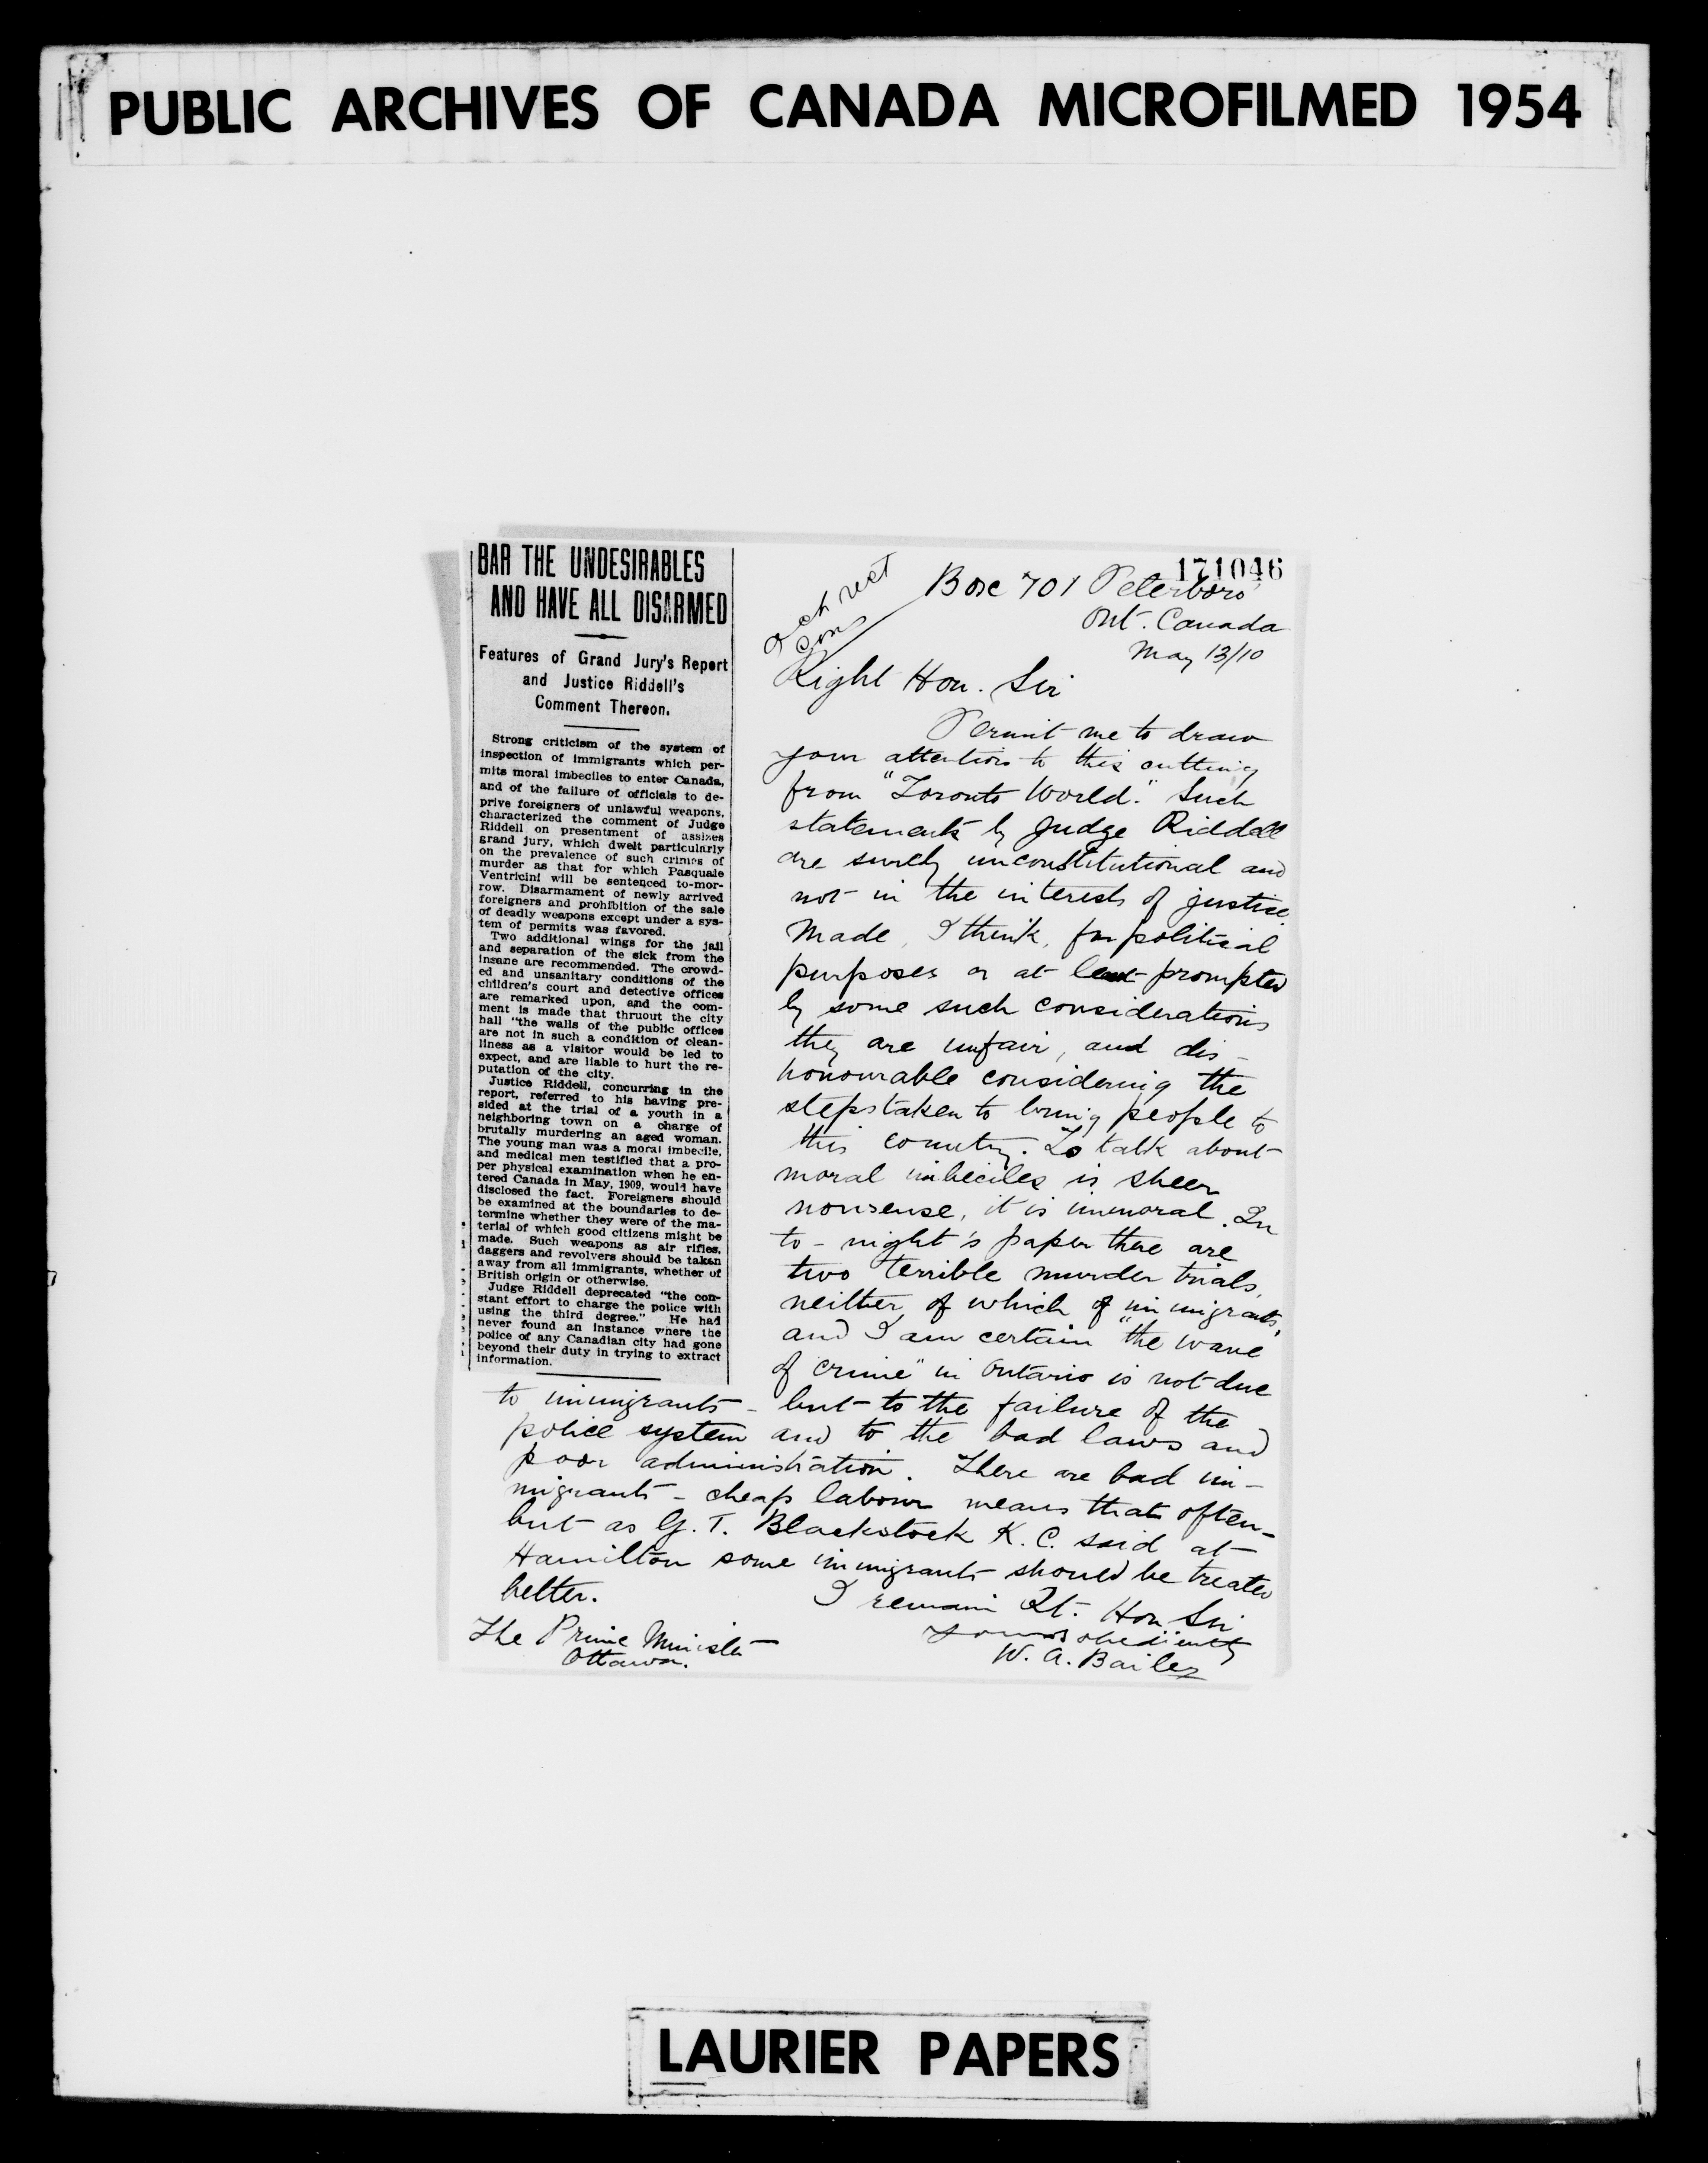 PUBLIC ARCHIVES OF CANADA MICROFILMED 1954
BAR THE UNDESIRABLES
AND HAVE ALL DISARMED
Features of Grand Jury's Report
and Justice Riddell's
Comment Thereon.
Strong criticism of the system of
inspection of immigrants which per-
mits moral imbeciles to enter Canada,
and of the failure of officials to de-
prive foreigners of unlawful weapons,
characterized the comment of Judge
Riddell on presentment of assizes
grand jury, which dwelt particularly
on the prevalence of such crimes of
murder as that for which Pasquale
Ventricini will be sentenced to-mor-
row. Disarmament of newly arrived
foreigners and prohibition of the sale
of deadly weapons except under a sys-
tem of permits was favored.
Two additional wings for the jail
and separation of the sick from the
insane are recommended. The crowd-
ed and unsanitary conditions of the
children's court and detective offices
are remarked upon, and the com-
ment is made that thruout the city
hall "the walls of the public offices
are not in such a condition of clean-
liness as a visitor would be led to
expect, and are liable to hurt the re-
putation of the city.
Justice Riddell, concurring in the
report, referred to his having pre-
sided at the trial of a youth in a
neighboring town on a charge of
brutally murdering an aged woman.
The young man was a moral imbecile,
and medical men testified that a pro-
per physical examination when he en-
tered Canada in May, 1909, would have
disclosed the fact. Foreigners should
be examined at the boundaries to de-
termine whether they were of the ma-
terial of which good citizens might be
made. Such weapons as air rifles,
daggers and revolvers should be taken
away from all immigrants, whether of
British origin or otherwise.
Judge Riddell deprecated "the con-
stant effort to charge the police with
using the third degree." He had
never found an instance where the
police of any Canadian city had gone
beyond their duty in trying to extract
information.
171046
Box 701 Peterboro
Ont. Canada
May 13/10
Right Hon. Sir
Permit me to draw
your attention to this cutting
from "Toronto World." Such
statements by Judge Riddell
are surely unconstitutional and
not in the interests of justice.
Made, I think, for political
purposes or at least prompted
by some such considerations
they are unfair, and dis-
honourable considering the
steps taken to bring people to
this country. To talk about
moral imbeciles is sheer
nonsense, it is immoral. In
to-night's paper there are
two terrible murder trials,
neither of which of immigrants,
and I am certain "the wave
of crime" in Ontario is not due
to immigrants - but to the failure of the
police system and to the bad laws and
poor administration. There are bad im-
migrants - cheap labour means that often-
but as G. T. Blackstock K. C. said at
Hamilton some immigrants should be treated
better.
I remain Rt. Hon Sir
Yours obediently
W. A. Bailey
The Prime Minister
Ottawa.
LAURIER PAPERS